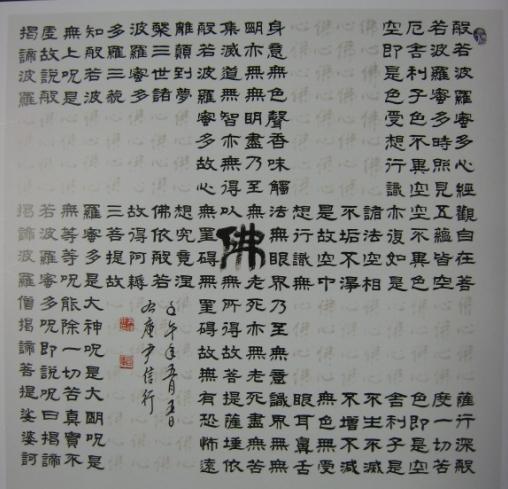 般若波羅蜜多心經觀自在菩薩行深般
若波羅蜜多時照見五蘊皆空度一切苦
厄舍利子色不異空空不異色色即是空
空即是色受想行識亦復如是舍利子是
諸法空相不生不滅
不垢不淨不增不減
是故空中無色無受
想行識無眼耳鼻舌
身意無色聲香味觸法無眼界乃至無意識界無無
明亦無無明盡乃至無老死亦無老死盡無苦
佛
集滅道無智亦無得以無所得故菩提薩埵依
般若波羅蜜多故心無罣礙無罣礙故無有恐怖遠
離顛到夢想究竟涅
槃三世諸佛依般若
波羅蜜多故得阿耨
多羅三藐三菩提故
知般若波羅蜜多是大神呪是大明呪是
無上呪是無等等呪能除一切苦真實不
虛故說般若波羅蜜多呪即說呪曰揭諦
揭諦波羅揭諦波羅僧揭諦菩提娑婆訶
午年五月五日
尹信行